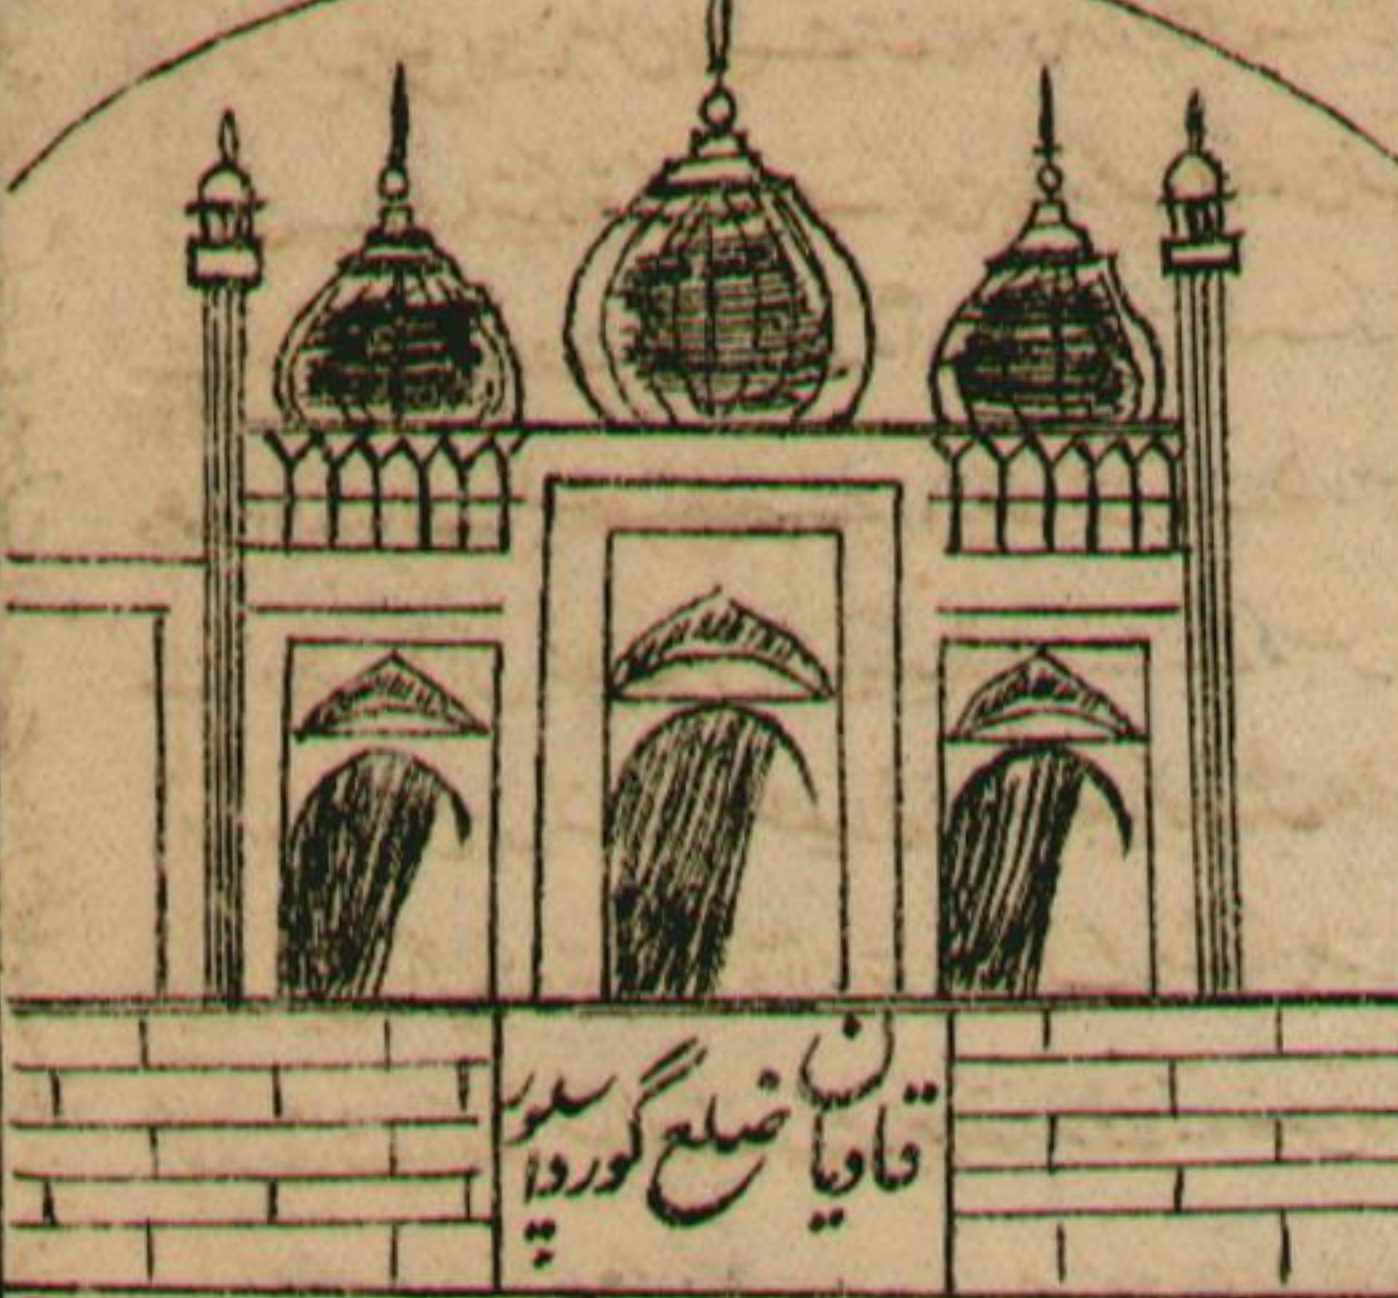 قادیان ضلع گورداسپور